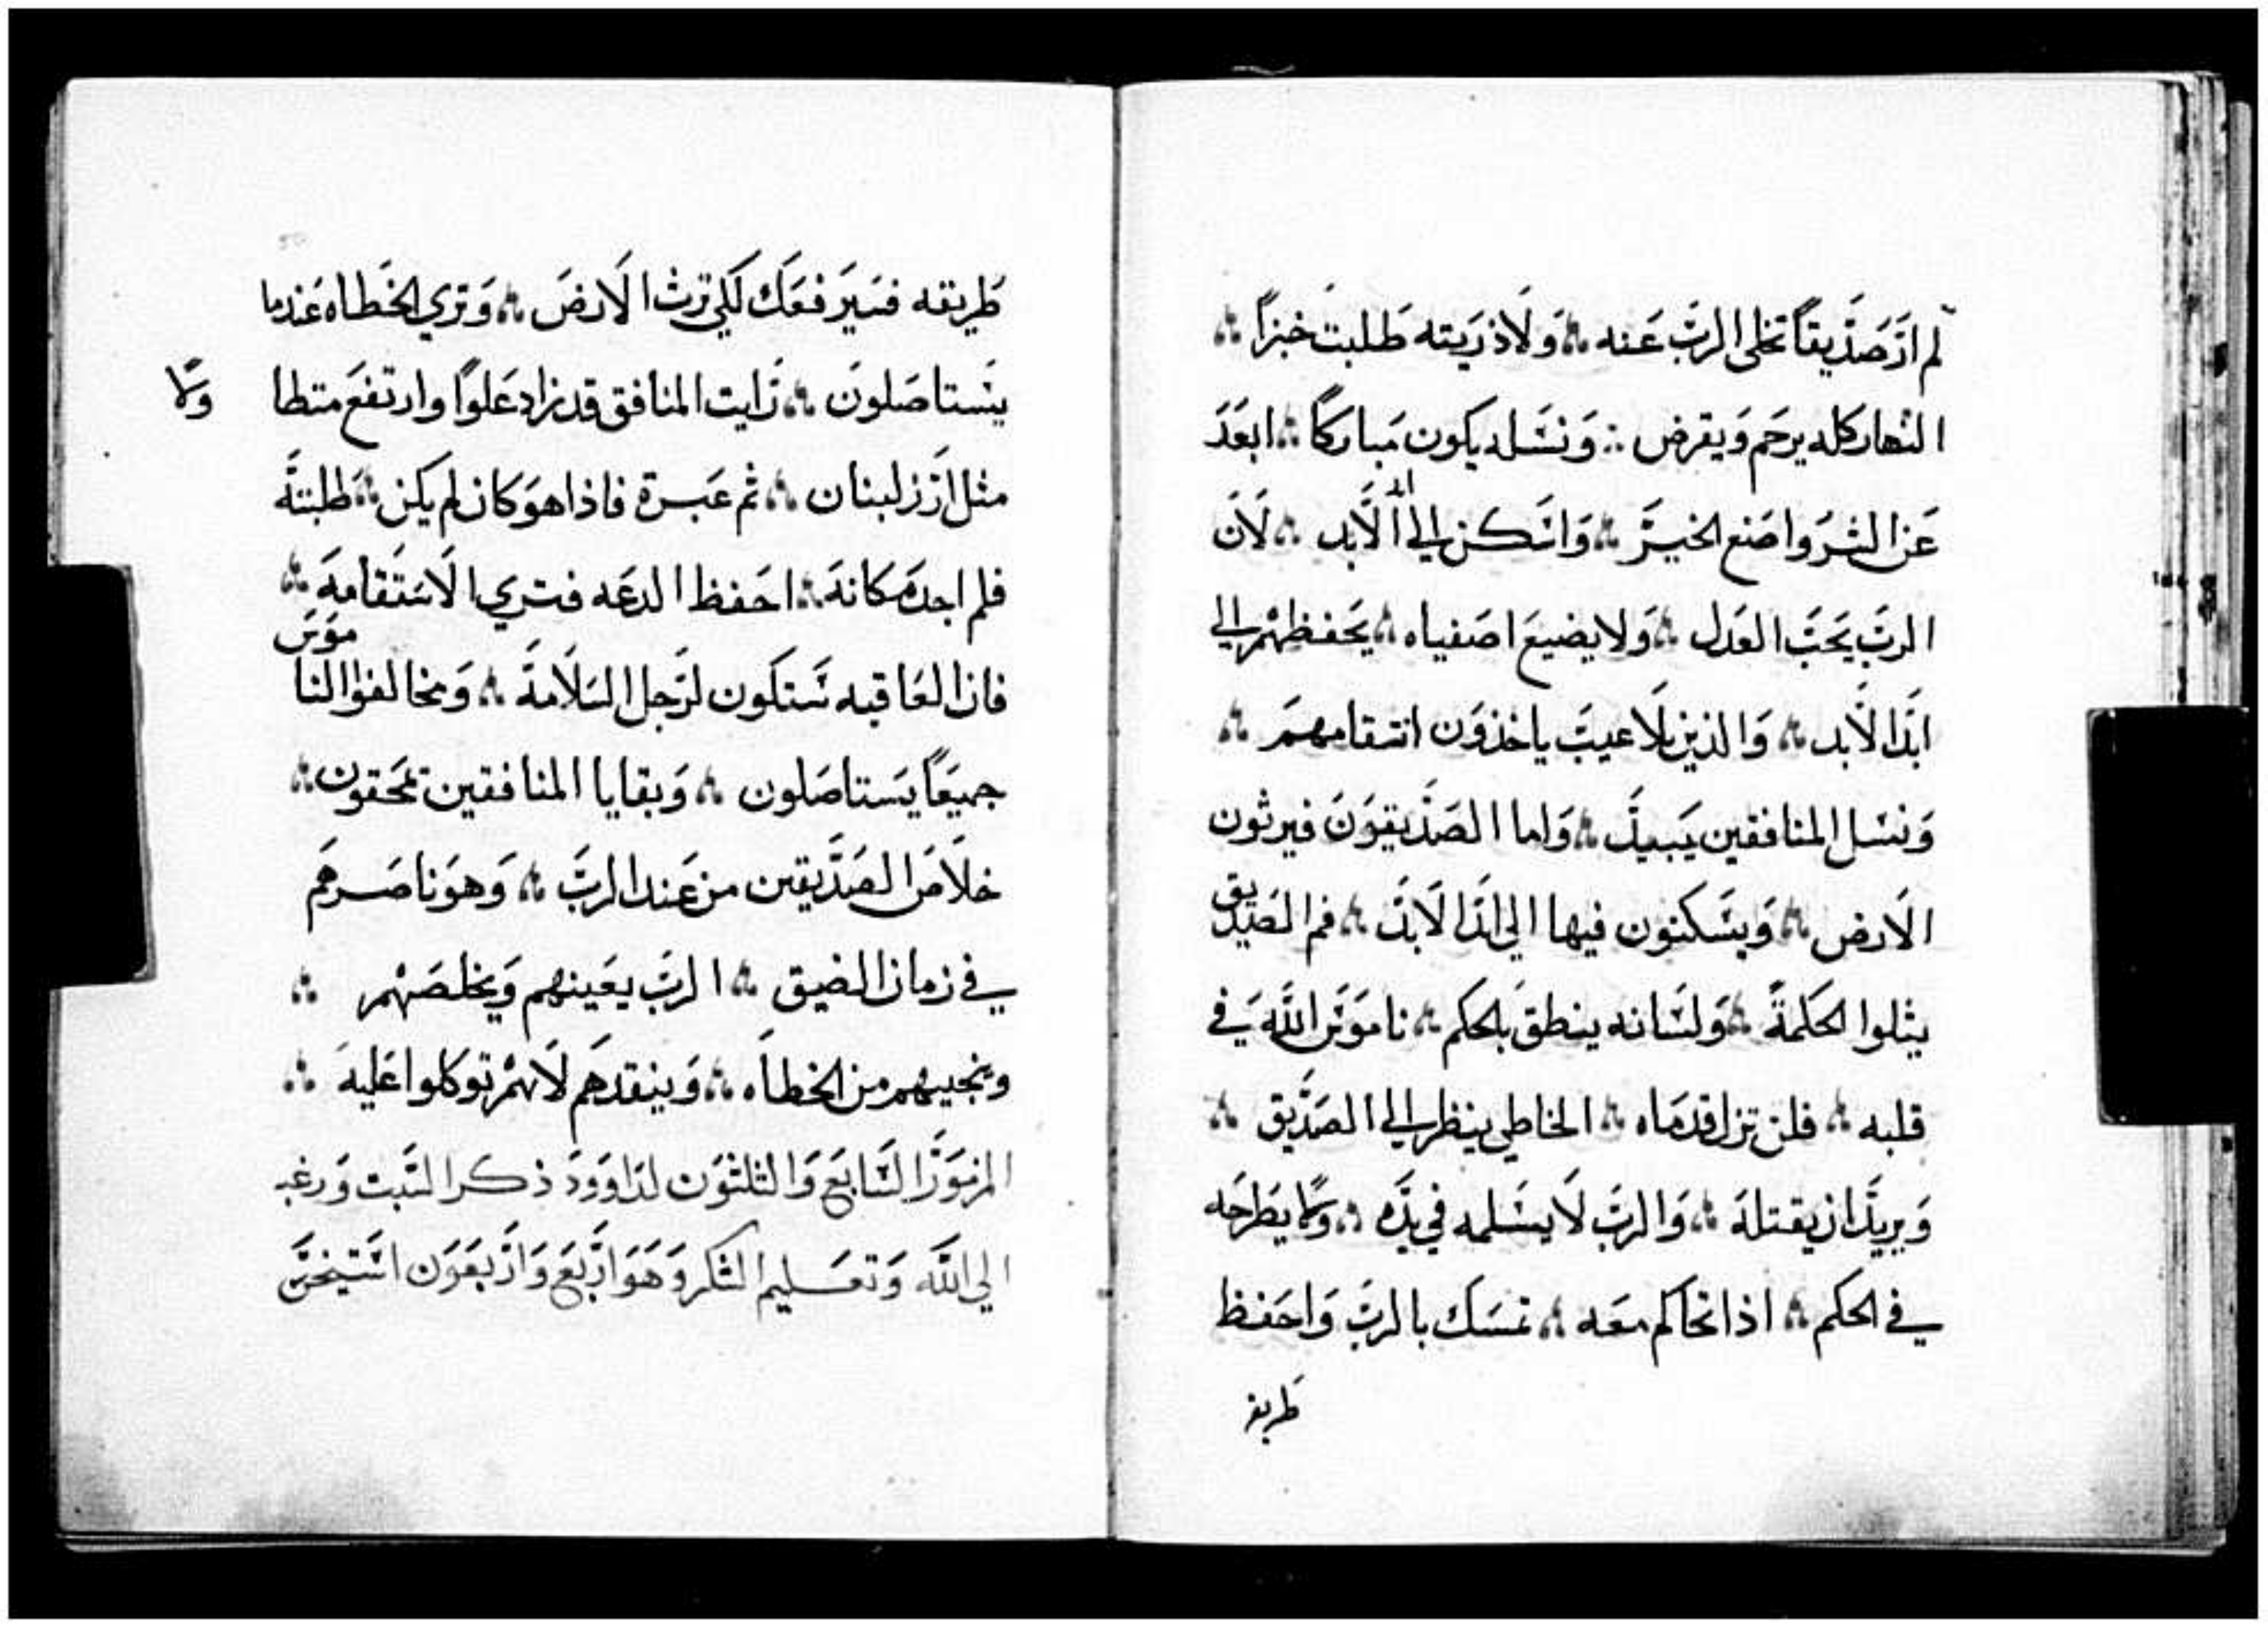 لم ارَ صَدّيقاً تخلى الربّ عَنه ؞ وَلَا ذريته طَلبت خبزاً ؞
النهار كله يرحَم وَيقرض ؞ وَنسَله يكون مَباركاً ؞ ابعَدَ
عَن الشرَ وَاصَنع الخيرَ ؞ وَاسَكن الي الَابد ؞ لَان
الربَ يَحبَ العَدل ؞ وَلا يضيعَ اصَفياه ؞ يَحفظهمْ الي
ابَدا لَابد ؞ وَالذين بلَا عيبَ ياخذوَن انتقامهمَ ؞
وَنسَل المنافقين يَبيدَ ؞ وَاما الصَدّيقوَنَ فيرثون
الَارض ؞ وَيسَكنون فيها الي ابَدا لَابدَ ؞ فم الصَديق
يتلوا الحَكمةَ ؞ وَلسَانه ينطقَ بالحكم ؞ ناموَس اللَّه فَي
قلبه ؞ فلن تزل قدمَاه ؞ الخاطي ينظر الي الصَدّيق ؞
وَيريدَ ان يقتلهَ ؞ وَالربَ لَا يسَلمه في يدَه ؞ وَلَا يطَرحَه
في الحكم ؞ اذا تحاكم معَه ؞ تمسَك بالربَ وَاحَفظ
طَريقـ
طَريقه فسَيرَفعَك لَكي ترث الَارضَ ؞ وَتري الخَطاه عَندما
يسَتاصَلونَ ؞ رَايت المنافق قد زاد عَلوًا وارتفعَ متطا
ولًا
مثل ارَز لبنان ؞ ثم عَبرة فاذا هوَ كان لم يكن ؞ طَلبتهَ
فلم اجد مَكانهَ ؞ احَفظ الدعَه فتري الَاستَقامهَ ؞
فان العَاقبه سَتكون لرَجل السَلَامةَ ؞ وَمخالفوا النا
موَسَ
جميعَاً يسَتاصَلون ؞ وَبقايا المنافقين تمحَقون ؞
خلَاصَ الصَدَّيقين من عَند الربَّ ؞ وَهوَ ناصَرهَم
في زمان الضيق ؞ الربَ يعَينهم وَيخلصَهْم ؞
وينجيهم من الخطاَه ؞ وَينقدهَم لَانهمْ توكلوا عَليهَ ؞
المزموَرَ السَابعَ وَالتلثوَن لدَاووَدَ ذكر السَبت وَرغبه
الي اللَّه وَتعَسليم الشكر وَهَوَ ارَبعَ وَارَبعَوَن اسَتيخنَ